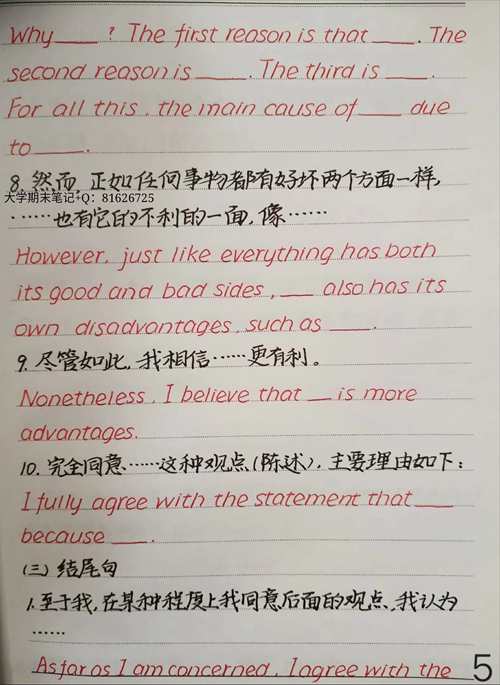 Why____? The first reason is that ____. The
second reason is ____. The third is ____.
For all this, the main cause of ____ due
to ____.
8. 然而, 正如任何事物都有好坏两个方面一样,
大学期末笔记+Q：81626725
……也有它的不利的一面, 像……
However, just like everything has both
its good and bad sides, ___ also has its
own disadvantages, such as ____.
9. 尽管如此, 我相信……更有利。
Nonetheless, I believe that __ is more
advantages.
10. 完全同意……这种观点(陈述), 主要理由如下:
I fully agree with the statement that ____
because ____.
(三) 结尾句
1. 至于我, 在某种程度上我同意后面的观点, 我认为
……
As far as I am concerned, I agree with the
5